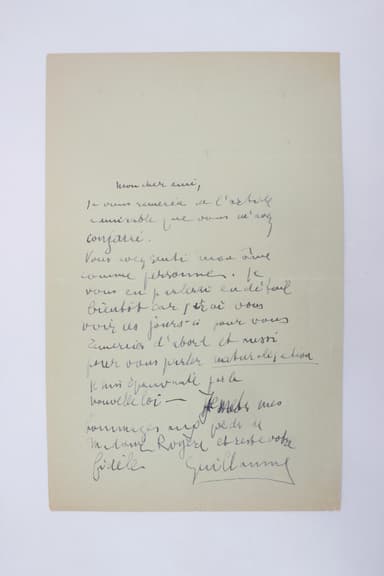 Mon cher ami,
Je vous remercie de l'article
admirable que vous m'avez
consacré.
Vous avez senti mon âme
comme personne. Je
vous en parlerai en détail
bientôt car j'irai vous
voir ces jours-ci pour vous
remercier d'abord et aussi
pour vous parler naturalisation
Je suis épouvanté par la
nouvelle loi — Je mets mes
hommages aux pieds de
Madame Rogère et reste votre
fidèle Guillaume